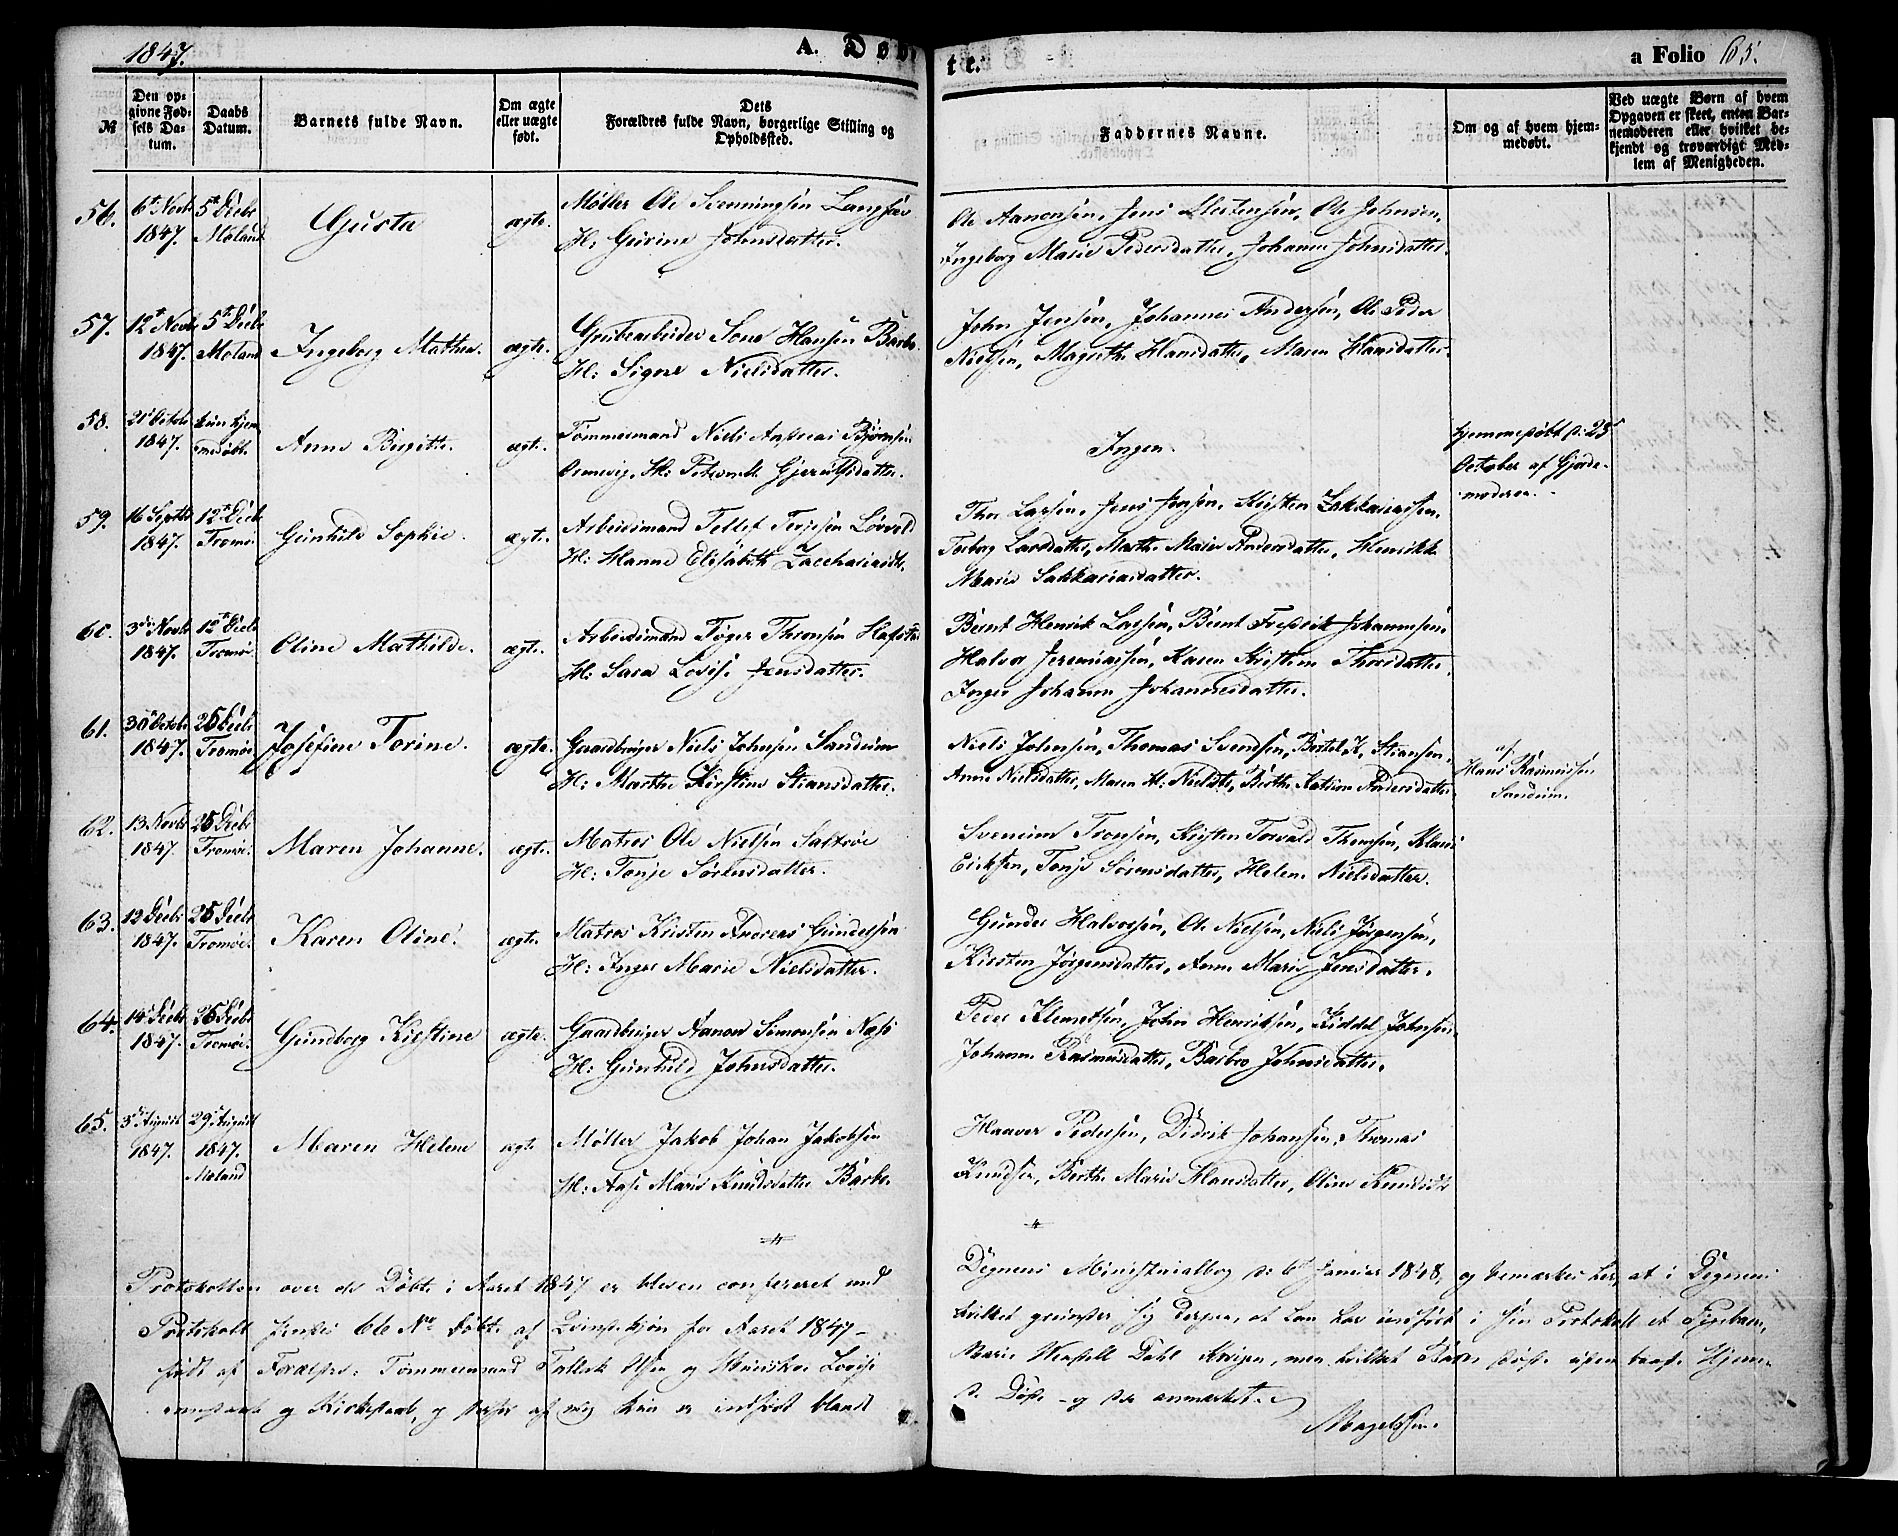 1847.
A. Døbte.
a Folio 65.
№
Den opgivne Fødsels Datum.
Daabs Datum.
Barnets fulde Navn.
Om ægte eller uægte født.
Dets Forældres fulde Navn, borgerlige Stilling og Opholdssted.
Faddernes Navne.
Om og af hvem hjemmedøbt.
Ved uægte Børn af hvem Opgaven er skeet, enten Barnemoderen eller hvilket bekjendt og troværdigt Medlem af Menigheden.
56. 6te Novb 1847. 5te Decbr Moland Gusta ægte. Møller Ole Svenningsen
H: Gurine Johnsdatter.
Ole Aanonsen, Jens Ellertsen, Ole Johnsen,
Ingeborg Marie Pedersdatter, Johanne Johnsdatter.
57. 12te Novb 1847. 5te Decbr Moland Ingeborg Mathea. ægte. Grubearbeider Hansen Barbo
H: Signe Nielsdatter.
John Jensen, Johannes Andersen, Ole Peder
Nielsen, Magrethe Hansdatter, Maren Hansdatter.
58. 21de Octob 1847. kun hjemmedøbt. Anne Birgitte. ægte. Tømmermand Niels Andreas Bjørnsen
H: Gjerulfsdatter.
Ingen.
hjemmedøbt d: 25de
October af Gjorde-
moderen.
59. 16 Septb 1847. 12te Decb Tromø. Gunhild Sophie. ægte. Arbeidsmand Tellef Terjesen Løvold
H: Hanne Elisabeth Zacchariasdtr.
Thor Larsen, Jens Jensen, Kristen Zakkariassen,
Torborg Larsdatter, Marthe Marie Andersdatter, Henrikke
Marie Sakkariasdatter.
60. 3de Novb 1847. 12te Decb Tromø. Oline Mathilde. ægte. Arbeidsmand Tøger Thronsen
H: Sara Lovise Jensdatter.
Bernt Henrik Larsen, Bernt Fredrik Johannsen,
Halvor Jeremiassen, Karen Kristine Thorsdatter,
Inger Johanne Johannesdatter.
61. 30te Octob 1847. 25 Decb Tromøe. Josefine Torine. ægte. Gaardbruger Niels Johnsen Sandum
H: Marthe Kirstine Stiansdatter.
Niels Johnsen, Thomas Svendsen, Bertel K. Stiansen,
Anne Nielsdatter, Maren H. Nielsdtr, Berthe Katrine Andersdatter.
af Hans Rasmussen
Sandum.
62. 13 Novb 1847. 25 Decb Tromøe. Maren Johanne. ægte. Matros Ole Nielsen Saltrøe
H: Tonje Sørensdatter.
Svenum Tronsen, Kristen Torvald Thomsen, Klaus
Eriksen, Tonje Sørensdatter, Helene Nielsdatter.
63. 12 Decb 1847. 25 Decb Tromøe. Karen Oline. ægte. Matros Kristen Andreas Gundersen
H: Inger Marie Nielsdatter.
Gunder Halvorsen, Ole Nielsen, Niels Jørgensen,
Kirsten Jørgensdatter, Anne Marie Jensdatter.
64. 14 Decb 1847. 25 Decb Tromøe. Gundborg Kirstine ægte. Gaardbruger Aanon Simonsen Næss
H: Gunhild Johnsdatter.
Peder Klemetsen, John Henriksen, Kiddel Johnsen,
Johanne Rasmusdatter, Barbro Johnsdatter.
65. 3de August 1847. 29 August 1847. Moland Maren Helene ægte Møller Jakob Johan Jakobsen
H: Aase Marie Knudsdatter Barbo.
Haaver Pedersen, Didrik Johansen, Thomas
Knudsen, Berthe Marie Hansdatter, Oline Knudsdtr
Protokollen over de Døbte i Aaret 1847 er bleven confereret med
Degnens Ministerialbog d: 6te Januar 1848, og bemærkes her, at i Degnens
Protokoll findes 66 No Døbte af Qvindekjøn for Aaret 1847 –
hvilket grunder sig derpaa, at han har indført i sin Protokoll et Pigebarn,
født af Forældre: Tømmermand Tallak Olsen og Lovise
Marie Dahl men hvilket Barn døde uden baade Hjemme-
og Kirkedaab, og derfor af mig kun er indført blandt
de Døde – og der anmærket.
Magelssen.